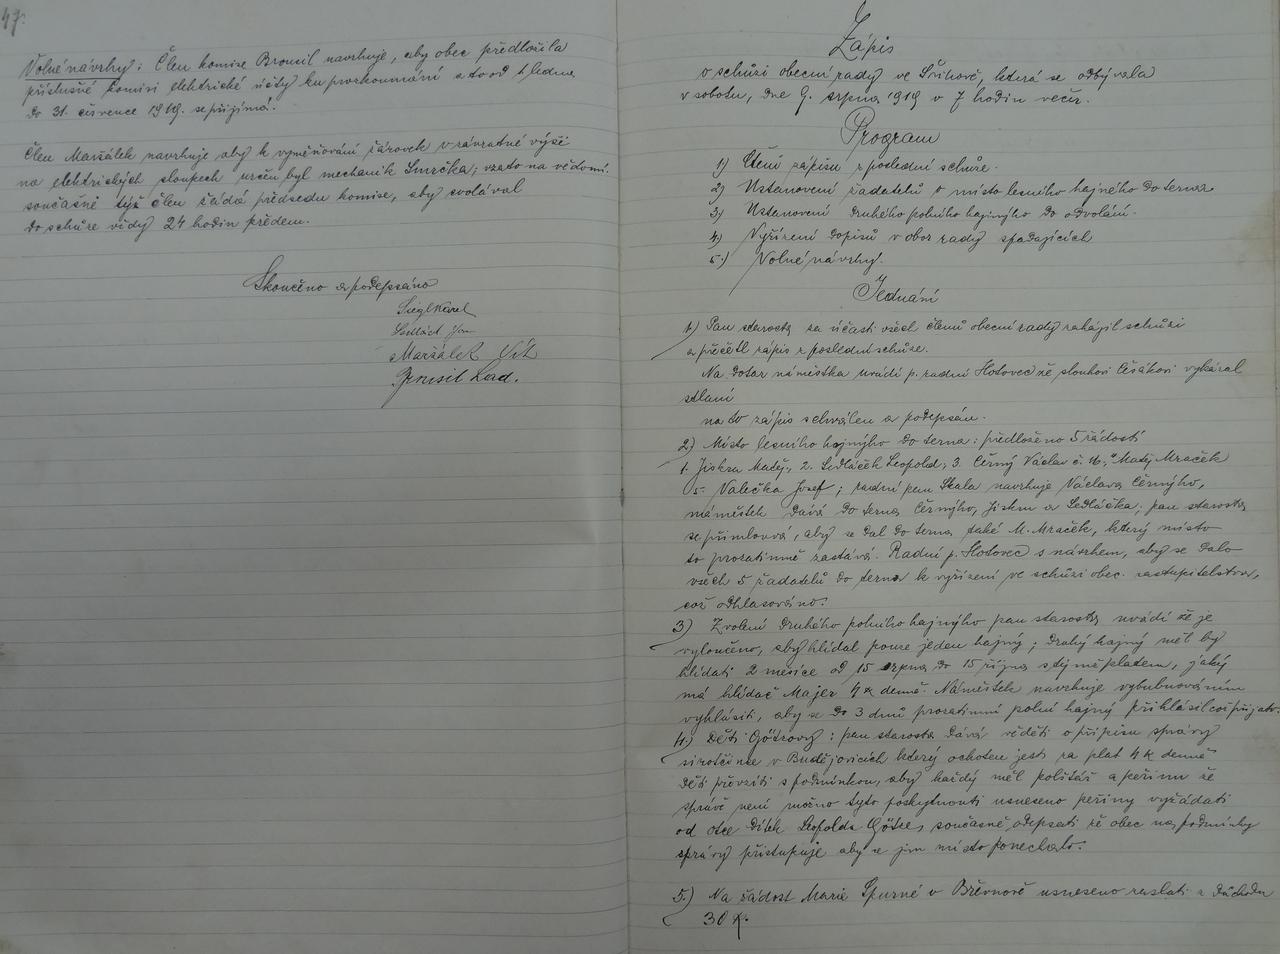 47.
Volné návrhy: Člen komise Bromil navrhuje, aby obec předložila
příslušné komisi elektrické účty ku prozkoumání a to od 1 ledna
do 31. července 1919. se přijímá.
Člen Maršálek navrhuje aby k vyměňování žárovek v závratné výši
na elektrických sloupech určen byl mechanik Smrčka; vzato na vědomí.
současně týž člen žádá předsedu komise, aby svolával
do schůze vždy 24 hodin předem.
Skončeno a podepsáno
Siegl Karel
Sedláček Jan
Maršálek Vít
Zápis
o schůzi obecní rady ve která se odbývala
v sobotu, dne 9. srpna 1919 v 7 hodin večer.
Program
1) Čtení zápisu z poslední schůze.
2) Ustanovení žadatelů o místo lesního hajného do terna
3) Ustanovení druhého polního hajnýho do odvolání.
4) Vyřízení dopisů v obor rady spadajících
5.) Volné návrhy.
Jednání
1.) Pan starosta za účasti všech členů obecní rady zahájil schůzi
a přečetl zápis z poslední schůze.
Na dotaz náměstka uvádí p. radní Hotovec že slouhovi Čišákovi vykázal
stlaní
na to zápis schválen a podepsán.
2) Místo lesního hajnýho do terna: předloženo 5 žádostí
1. Jiskra Matěj, 2. Sedláček Leopold, 3. Černý Václav č. 16, 4 Matěj Mraček
5. Valečka Josef; radní pan Skala navrhuje Václava Černýho,
náměstek dává do terna Černýho, Jiskru a Sedláčka; pan starosta
se přimlouvá, aby se dal do terna také M. Mraček, který místo
to prozatimně zastává. Radní p. Hotovec s návrhem, aby se dalo
všech 5 žadatelů do terna k vyřízení ve schůzi obec. zastupitelstva,
což odhlasováno.
3) Zvolení druhého polního hajnýho pan starosta uvádí že je
vyloučeno, aby hlídal pouze jeden hajný; druhý hajný měl by
hlídati 2 měsíce od 15 srpna do 15 října s týmž platem, jaký
má hlídač Majer 4 K denně. Náměstek navrhuje vybubnováním
vyhlásiti, aby se do 3 dnů prozatimní polní hajný přihlásil což přijato.
4.) Děti Götzovy: pan starosta dává věděti o přípisu správy
sirotčince v Budějovicích který ochoten jest za plat 4 K denně
děti převzíti s podmínkou, aby každý měl polštář a peřinu že
správě není možno tyto poskytnouti usneseno peřiny vyžádati
od otce dítek Leopolda Götze, současně odepsati že obec na podmínky
správy přistupuje aby se jim místo ponechalo.
5.) Na žádost Marie Spurné v Břevnově usneseno zaslati z důchodu
30 K.